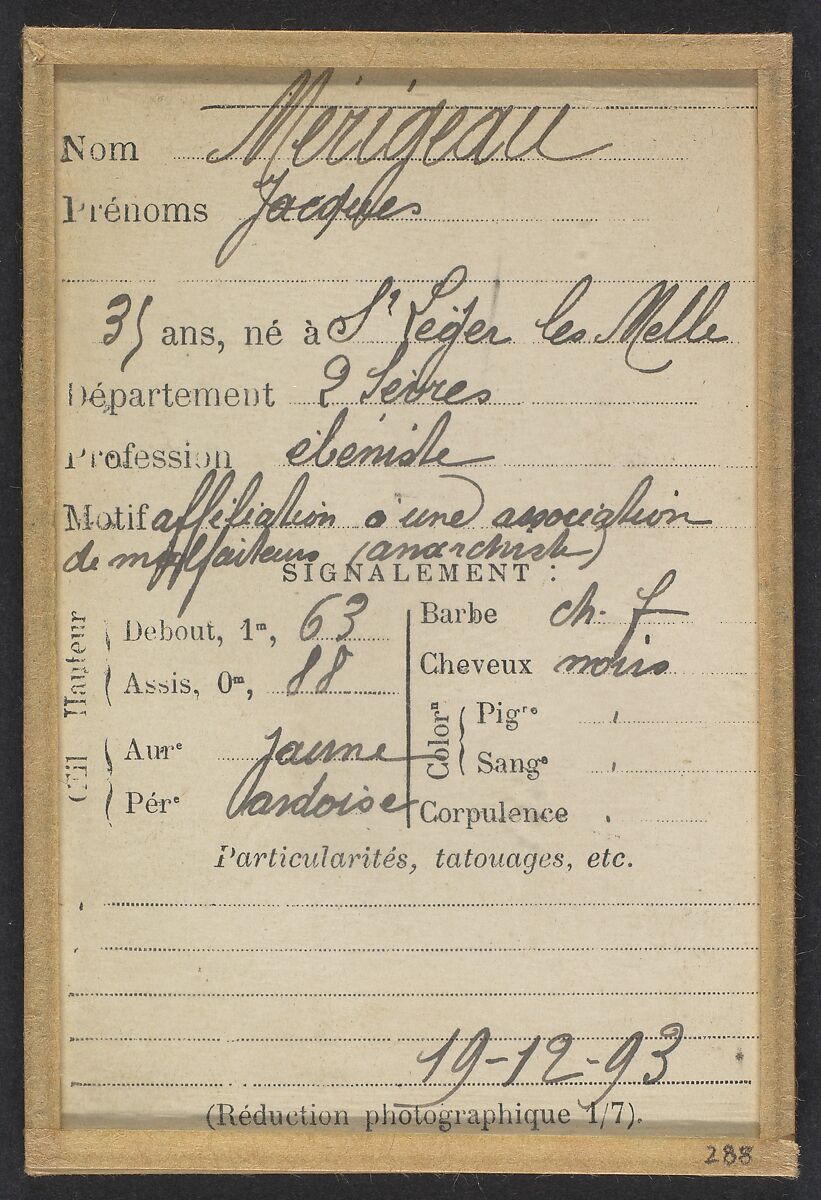 Nom Mérigeau
Prénoms Jacques
35 ans, né à St Léger les Melle
Département 2 Sèvres
Profession ébéniste
Motif affiliation à une association
de malfaiteurs (anarchiste)
SIGNALEMENT :
Hauteur
Debout, 1m, 63
Assis, 0m, 88
Œil
Aure jaune
Pére ardoise
Barbe ch. f
Cheveux noirs
Colorn
Pigre
Sange
Corpulence
Particularités, tatouages, etc.
19-12-93
(Réduction photographique 1/7).
288